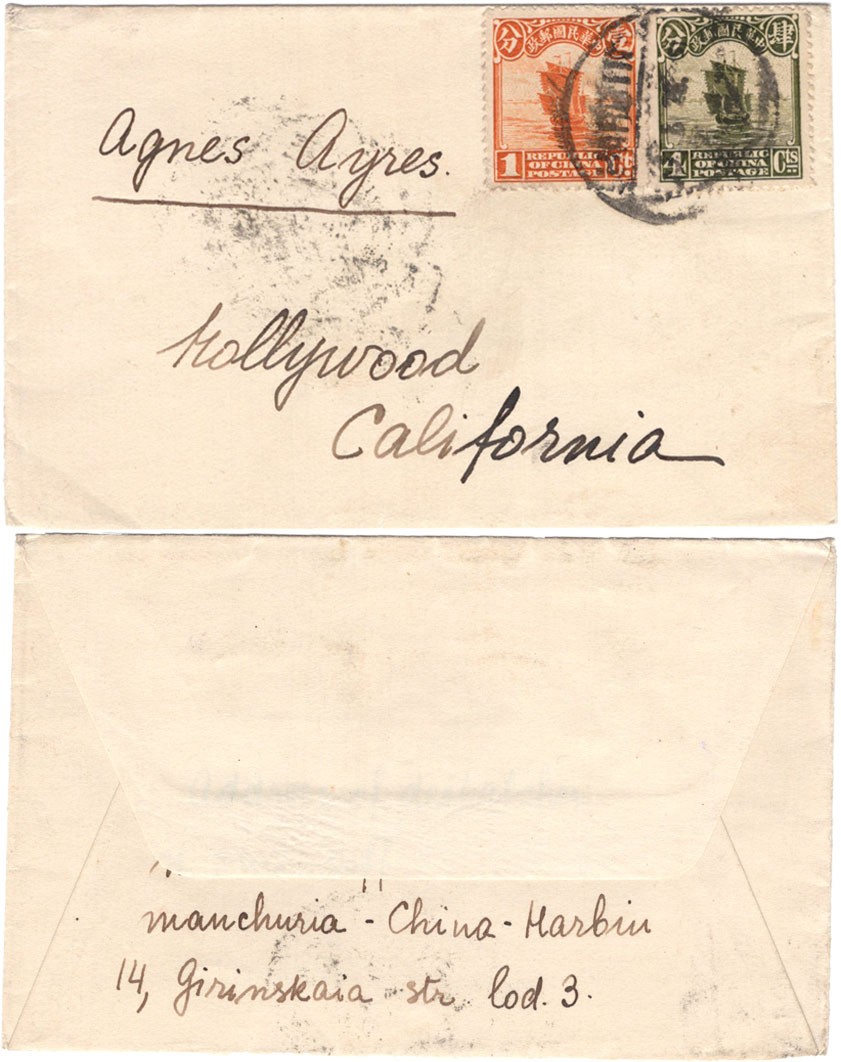 政郵國民華中
分 壹
1 REPUBLIC Ct.
OF CHINA
POSTAGE
政郵國民華中
分 肆
4 REPUBLIC Cts
OF CHINA
POSTAGE
Agnes Ayres.
Hollywood
California
manchuria - China - Harbin
14, Girinskaia str. lod. 3.